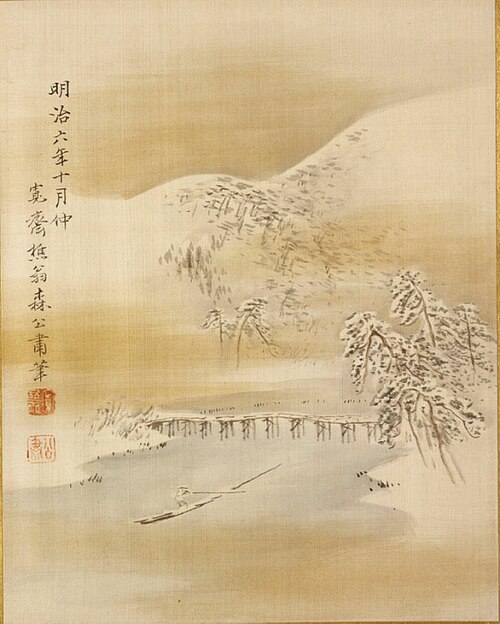 明治六年十月仲
寛齋樵翁森公肅筆